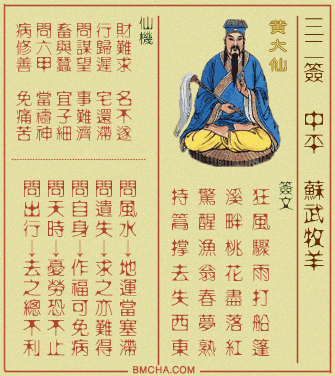 三三簽 中平 蘇武牧羊
黃大仙
簽文
狂風驟雨打船篷
溪畔桃花盡落紅
驚醒漁翁春夢熟
持篙撐去失西東
仙機
財難求 名不遂
行歸遲 宅還滯
問謀望 事難濟
畜與蠶 宜子細
問六甲 當禱神
病修善 免痛苦
問風水→地運當塞滯
問遺失→求之亦難得
問自身→作福可免病
問天時→憂勞恐不止
問出行→去之總不利
BMCHA.COM